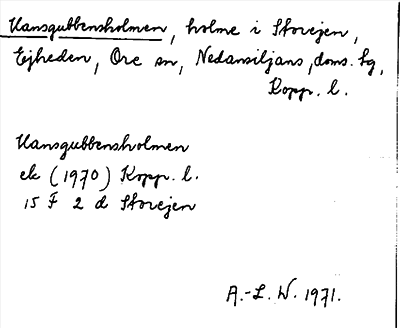 Hansgubbensholmen, holme i Storejen,
Ejheden, Ore sn, Nedansiljans, doms. lg,
Kopp. l.
Hansgubbensholmen
ek (1970) Kopp. l.
15 F 2 d Storejen
A.-L. W. 1971.